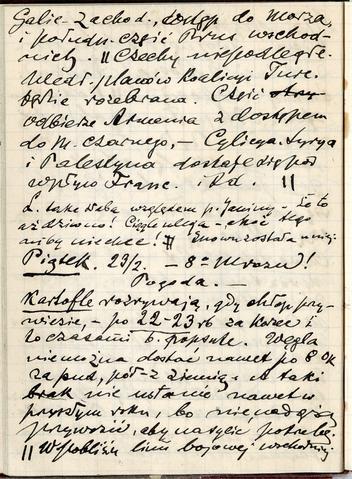 Galic. Zachod., dostęp do morza,
i połudn. część Prus wschod-
nich. || Czechy niepodległe.
Wedł. planów Koalicyi Turc.
będzie rozebrana. Część
odbierze Armenia z dostępem
do m. Czarnego, – Cylicya, Syrya
i Palestyna dostałe się pod
wpływ Franc. i t.d. ||
L. taka słaba względem p. Janiny – że to
aż dziwno! Ciągle ulega – choć tego
niby niechce! || Znowu została u niej
Piątek. 23/2. – 8° mrozu!
Pogoda. –
Kartofle rozrywają, gdy chłop przy-
wiezie, – po 22-23 rb za korzec i
to czasami b. popsute. Węgla
niemożna dostać nawet po 8 ok
za pud, pół z ziemią, – a taki
brak nie ustanie nawet w
przyszłym roku, bo nie nadążą
przywozić, aby nasycić potrzebę.
|| W pobliżu linii bojowej wschodniej